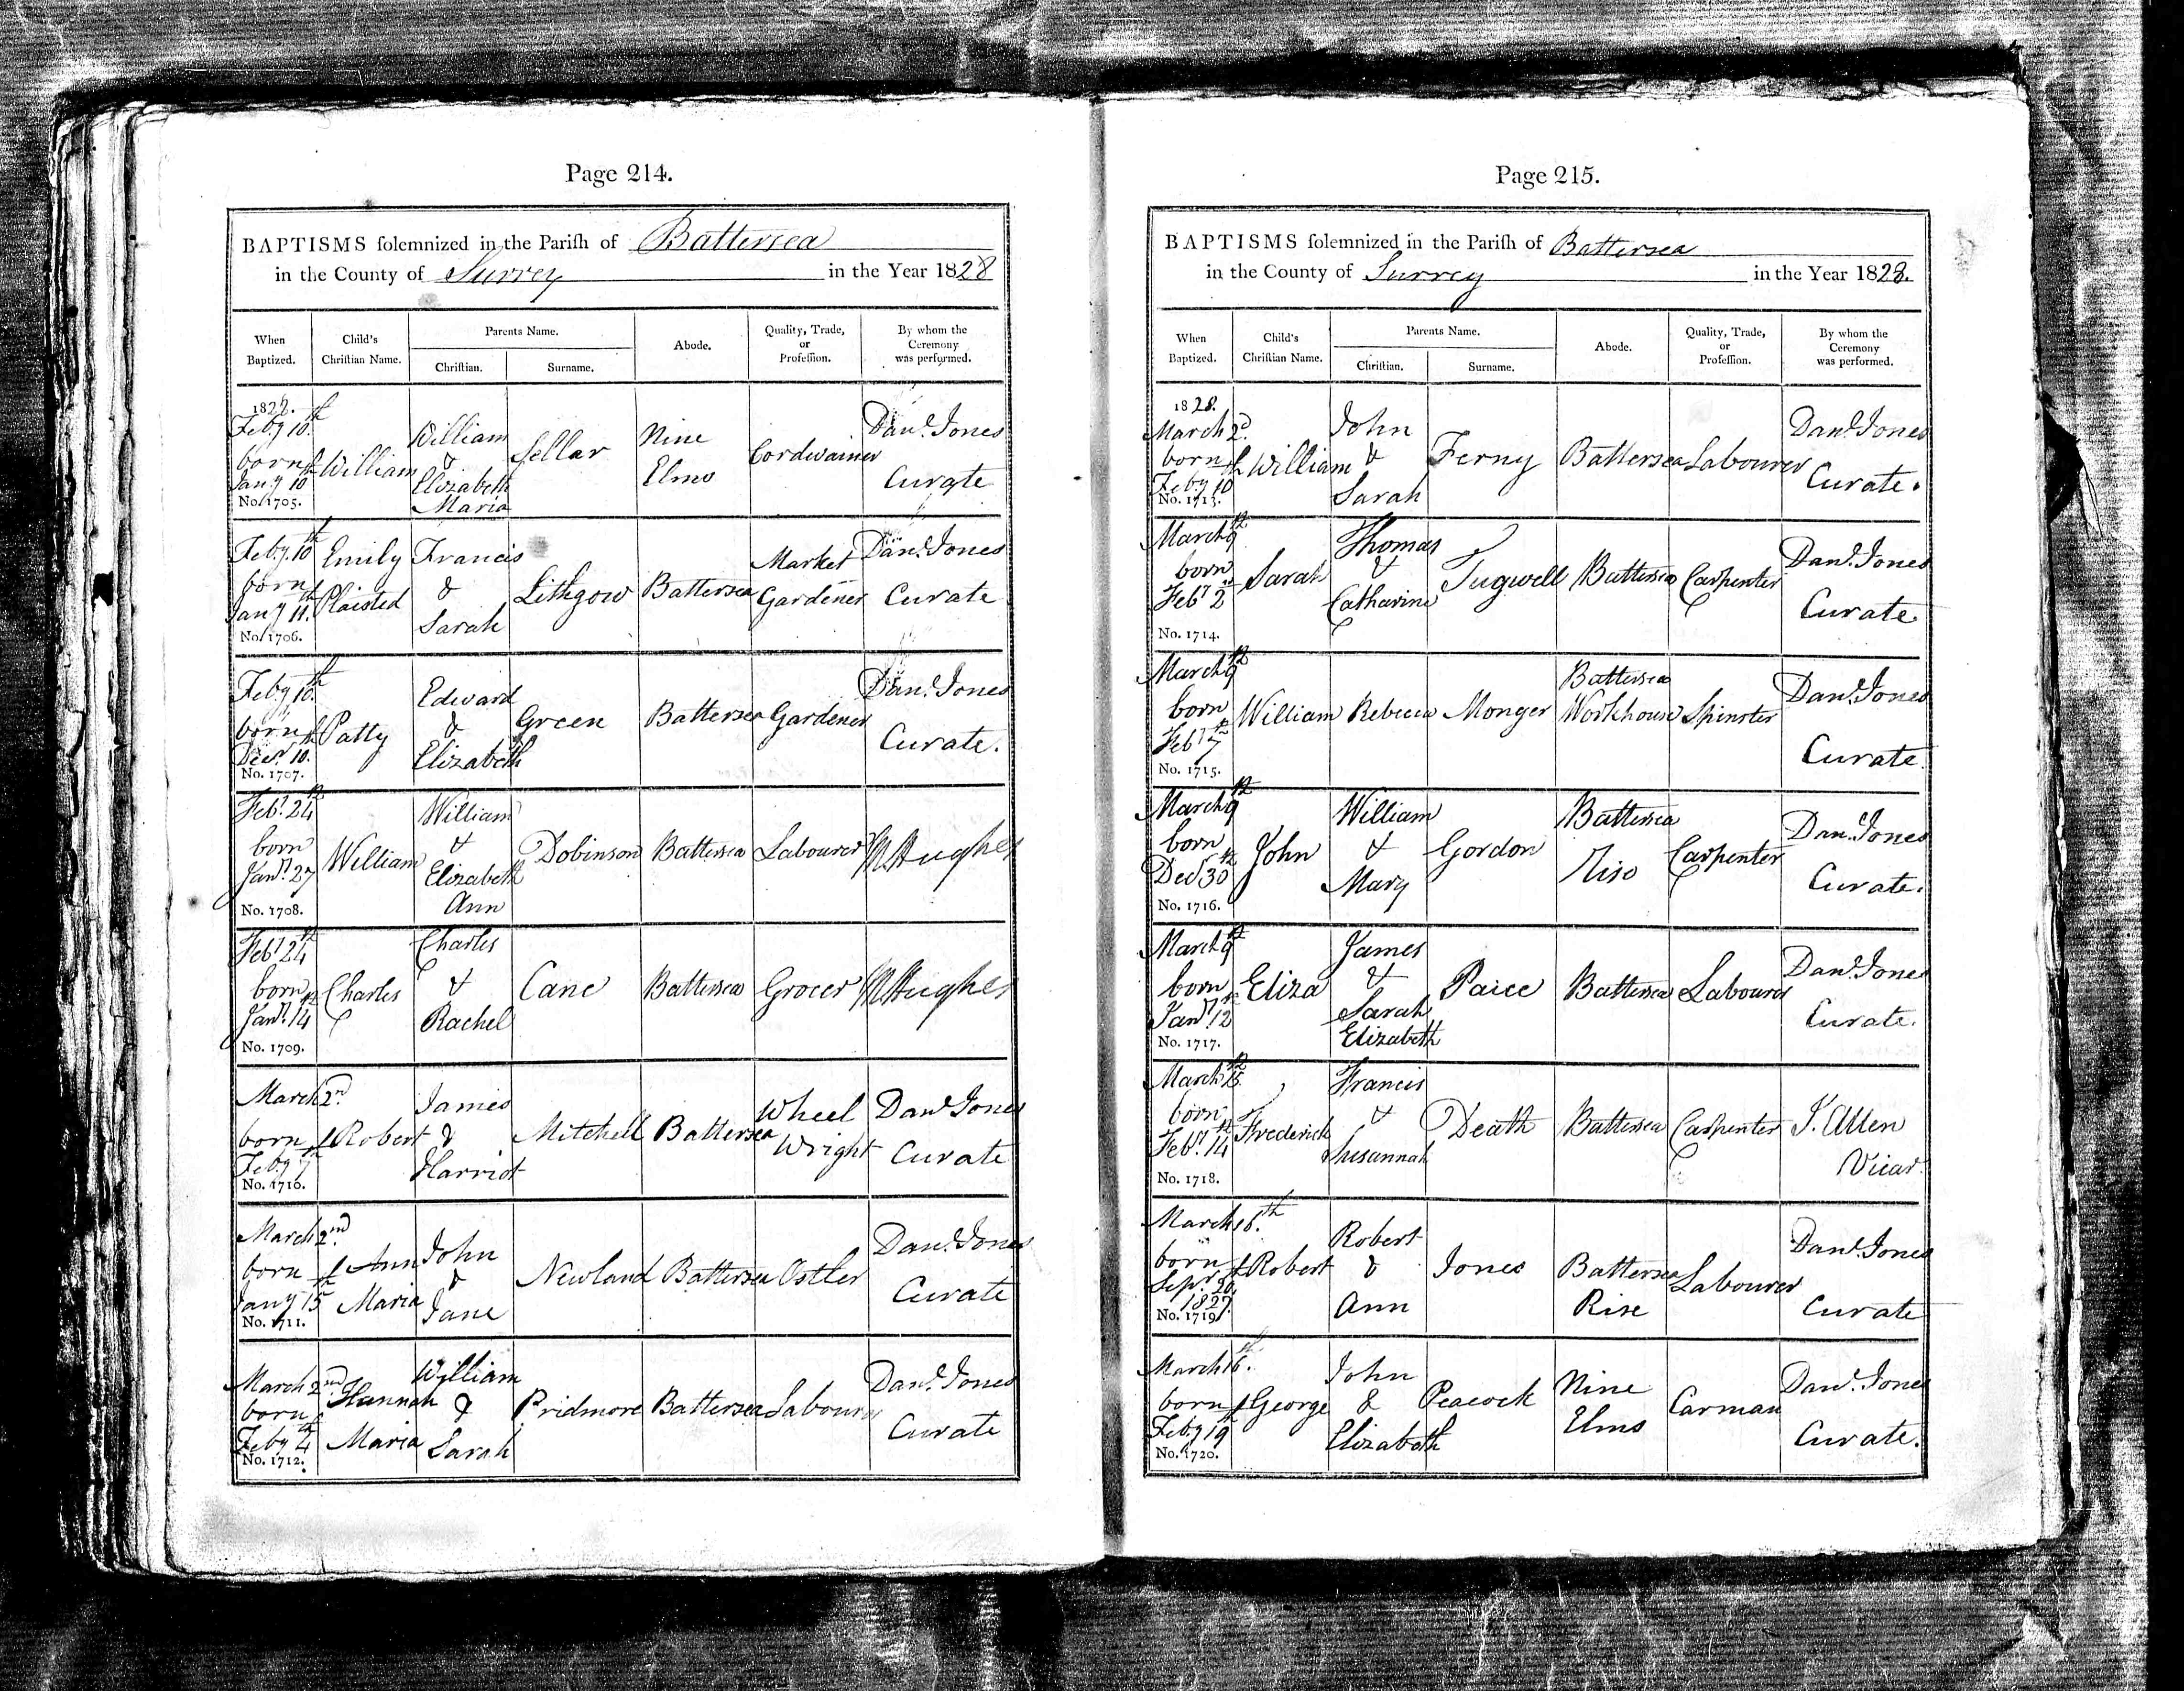 Page 214.
BAPTISMS solemnized in the Parish of Battersea
in the County of Surrey in the Year 1828
When Baptized. Child's Christian Name. Parents Name. Christian. Surname. Abode. Quality, Trade, or Profession. By whom the Ceremony was performed.
1828. Feby 10th born Jany 10th No. 1705. William William & Elizabeth Maria Sellar Nine Elms Cordwainer Danl. Jones Curate
Feby. 10th born Jany 11th. No. 1706. Emily Plaisted Francis & Sarah Lithgow Battersea Market Gardener Danl. Jones Curate
Feby 10th. born Decr. 10th. No. 1707. Patty Edward & Elizabeth Green Battersea Gardener Danl. Jones Curate.
Feby. 24th born Jany. 27 No. 1708. William William & Elizabeth Ann Dobinson Battersea Labourer Hughes
Feby 24th born Jany. 14th No. 1709. Charles Charles & Rachel Cane Battersea Grocer Hughes
March 2nd born Feby 7th No. 1710. Robert James & Harriot Mitchell Battersea Wheel Wright Danl Jones Curate
March 2nd. born Jany 15th No. 1711. Ann Maria John & Jane Newland Battersea Ostler Danl. Jones Curate
March 2nd. born Feby 4th No. 1712. Hannah Maria William & Sarah Pridmore Battersea Labourer Danl. Jones Curate
Page 215.
BAPTISMS solemnized in the Parish of Battersea
in the County of Surrey in the Year 1828.
When Baptized. Child's Christian Name. Parents Name. Christian. Surname. Abode. Quality, Trade, or Profession. By whom the Ceremony was performed.
1828. March 2d. born Feby 10th No. 1713. William John & Sarah Ferny Battersea Labourer Danl. Jones Curate.
March 9th born Feby 2nd No. 1714. Sarah Thomas & Catharine Tugwell Battersea Carpenter Danl. Jones Curate
March 9th born Feby 7th No. 1715. William Rebecca Monger Battersea Workhouse Spinster Danl. Jones Curate
March 9th born Decr 30th No. 1716. John William & Mary Gordon Battersea Rise Carpenter Danl. Jones Curate.
March 9th born Jany 12th No. 1717. Eliza James & Sarah Elizabeth Paice Battersea Labourer Danl. Jones Curate.
March 15th. born Feby. 14th No. 1718. Frederick Francis & Susannah Death Battersea Carpenter J. Allen Vicar
March 16th. born Sepr. 20th. 1827. No. 1719. Robert Robert & Ann Jones Battersea Rise Labourer Danl. Jones Curate
March 16th. born Feby 19th No. 1720. George John & Elizabeth Peacock Nine Elms Carman Danl. Jones Curate.